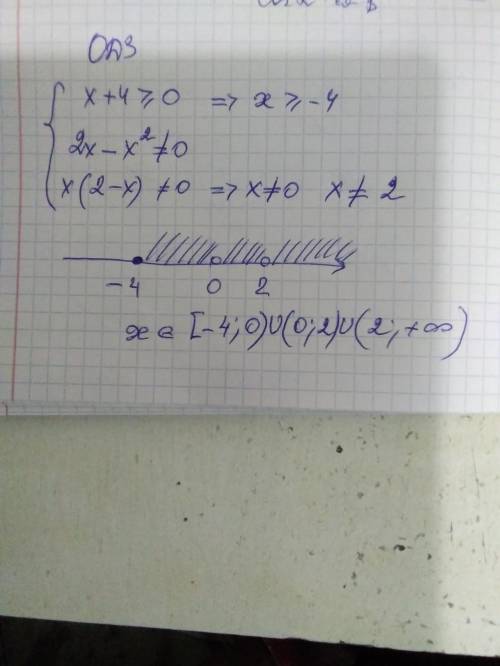 ОДЗ
x+4 ⩾ 0 => x ⩾ -4
2x - x² ≠ 0
x(2-x) ≠ 0 => x≠0 x≠2
-4 0 2
x ∈ [-4;0)∪(0;2)∪(2;+∞)